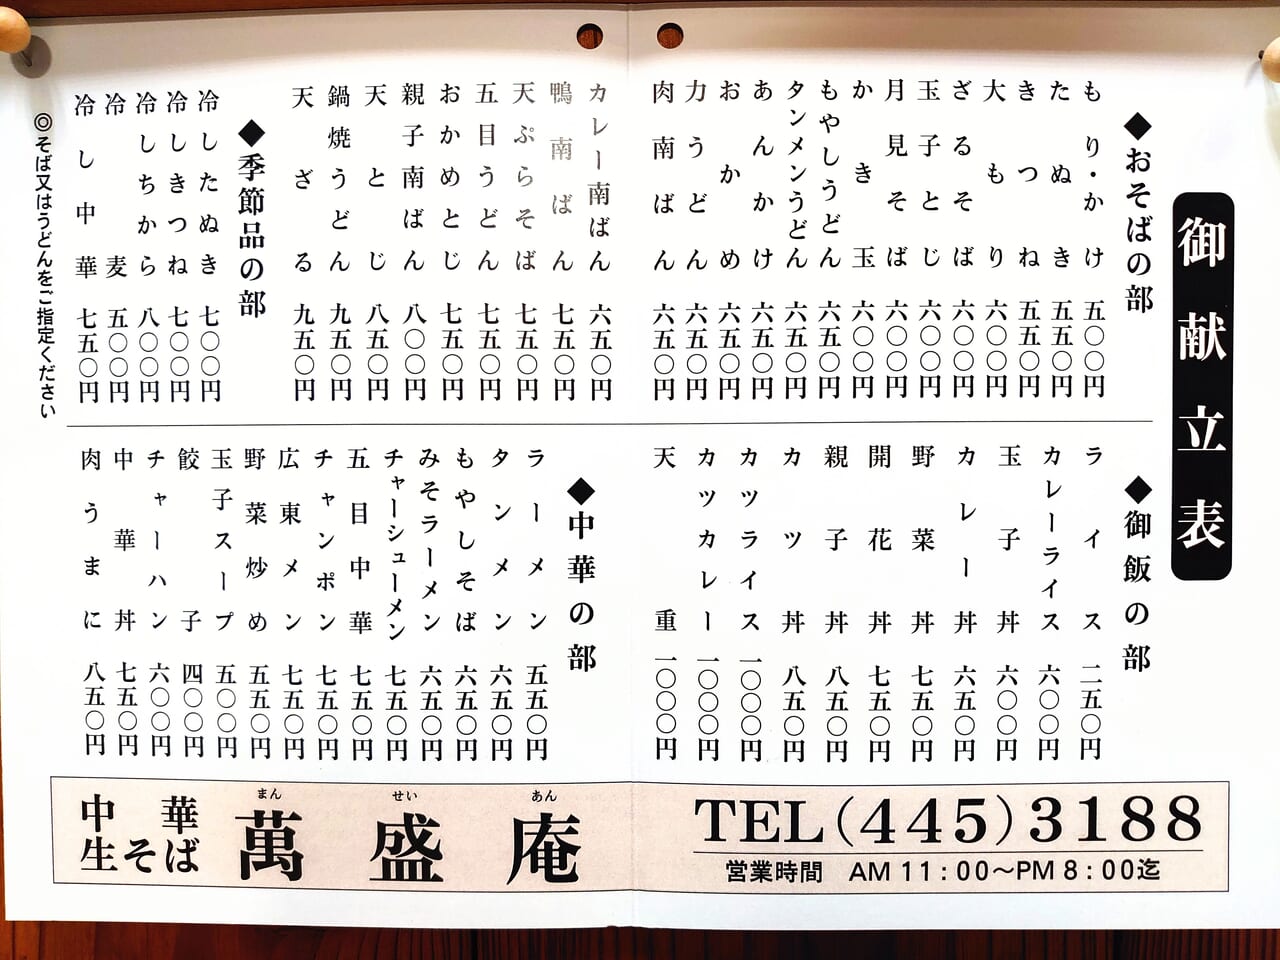 御献立表
◆おそばの部
もり・かけ 五〇〇円
たぬき 五五〇円
きつね 五五〇円
大もり 六〇〇円
ざるそば 六〇〇円
玉子とじ 六〇〇円
月見そば 六〇〇円
かき玉 六〇〇円
もやしうどん 六五〇円
タンメンうどん 六五〇円
あんかけ 六五〇円
おかめ 六五〇円
力うどん 六五〇円
肉南ばん 六五〇円
カレー南ばん 六五〇円
鴨南ばん 七五〇円
天ぷらそば 七五〇円
五目うどん 七五〇円
おかめとじ 七五〇円
親子南ばん 八〇〇円
天とじ 八五〇円
鍋焼うどん 九五〇円
天ざる 九五〇円
◆季節品の部
冷したぬき 七〇〇円
冷しきつね 七〇〇円
冷しちから 八〇〇円
冷麦 五〇〇円
冷し中華 七五〇円
◎そば又はうどんをご指定ください
◆御飯の部
ライス 二五〇円
カレーライス 六〇〇円
玉子丼 六〇〇円
カレー丼 六五〇円
野菜丼 七五〇円
開花丼 七五〇円
親子丼 八五〇円
カツ丼 八五〇円
カツライス 一〇〇〇円
カツカレー 一〇〇〇円
天重 一〇〇〇円
◆中華の部
ラーメン 五五〇円
タンメン 六五〇円
もやしそば 六五〇円
みそラーメン 六五〇円
チャーシューメン 七五〇円
五目中華 七五〇円
チャンポン 七五〇円
広東メン 七五〇円
野菜炒め 五五〇円
玉子スープ 五〇〇円
餃子 四〇〇円
チャーハン 六〇〇円
中華丼 七五〇円
肉うまに 八五〇円
中華
生そば
まん せい あん
萬盛庵
TEL(445)3188
営業時間 AM11:00〜PM8:00迄